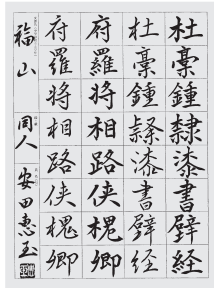 杜稾鍾隷漆書壁経
杜稾鍾隷漆書壁経
府羅将相路侠槐卿
府羅将相路侠槐卿
福山 同人 安田惠玉